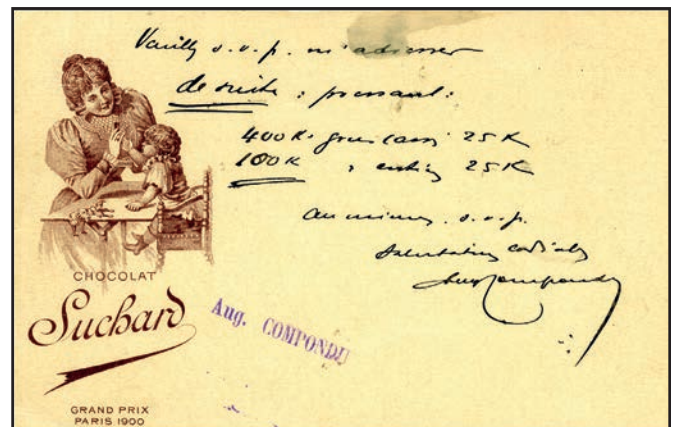 Veuillez s.v.p. m'adresser
de suite : pressant :
400 K. 25 K
100 K 25 K
au mieux, s.v.p.
Salutations cordiales
Aug Compondu
CHOCOLAT
Suchard
Aug. COMPONDU
GRAND PRIX
PARIS 1900